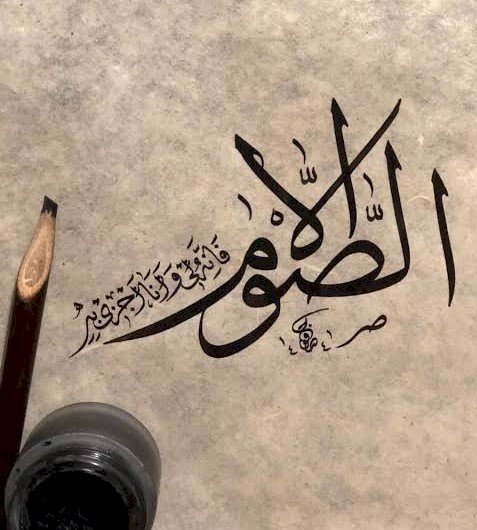 إلّا الصّوم
فَإنّهُ لِي وَأَنَا أَجْزِي بِهِ